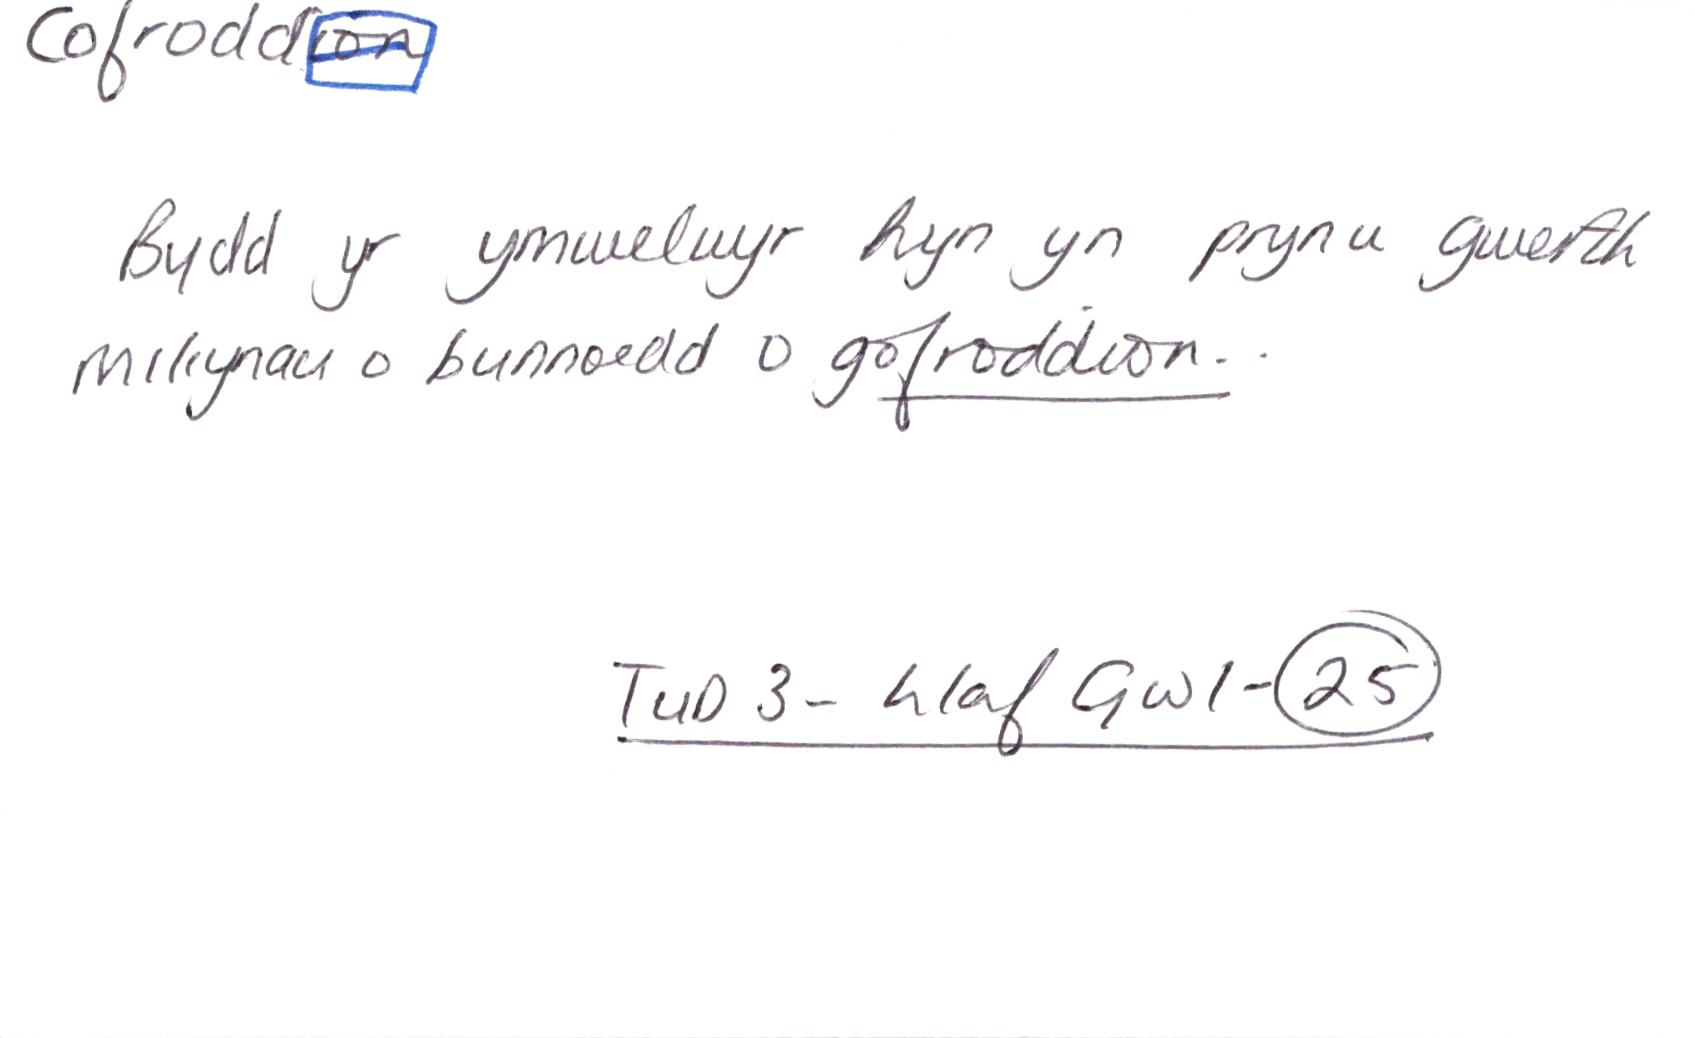 Cofroddion
Bydd yr ymwelwyr hyn yn prynu gwerth
miliynau o bunnoedd o gofroddion..
TUD 3- Llaf GWl-25